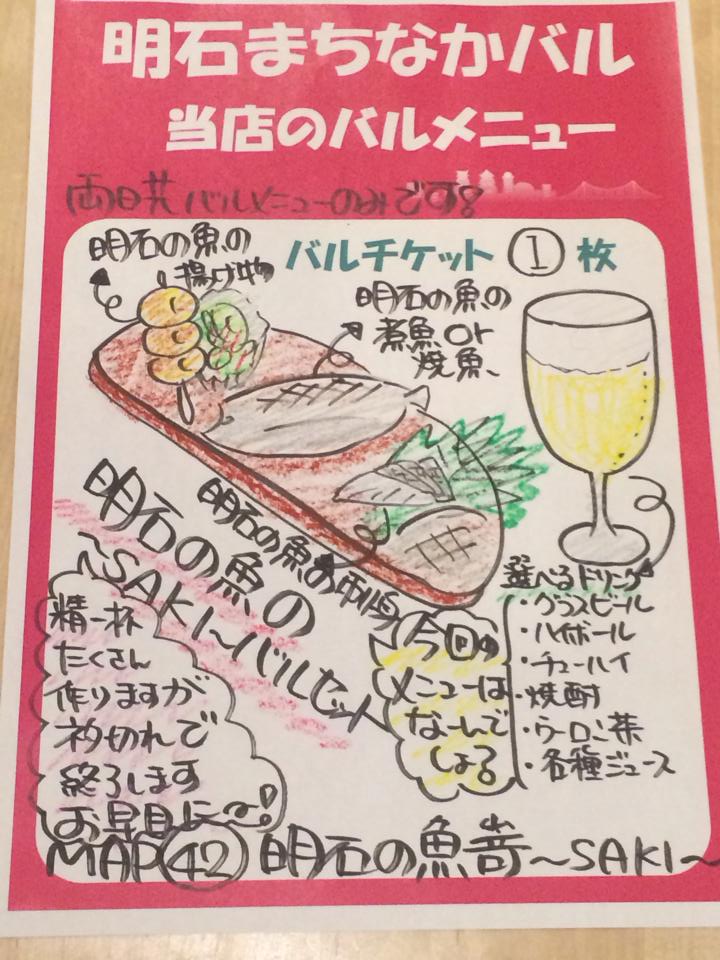 明石まちなかバル
当店のバルメニュー
両日共バルメニューのみです!
バルチケット ① 枚
明石の魚の
揚げ物
明石の魚の
煮魚or
焼魚、
明石の魚のお刺身
明石の魚の
~SAKI~バルセット
選べるドリンク
・グラスビール
・ハイボール
・チューハイ
・焼酎
・ウーロン茶
・各種ジュース
今回の
メニューは
な~んで
しょる
精一杯
たくさん
作りますが
ネタ切れで
終了します
お早目に~!
MAP㊷ 明石の魚嵜~SAKI~